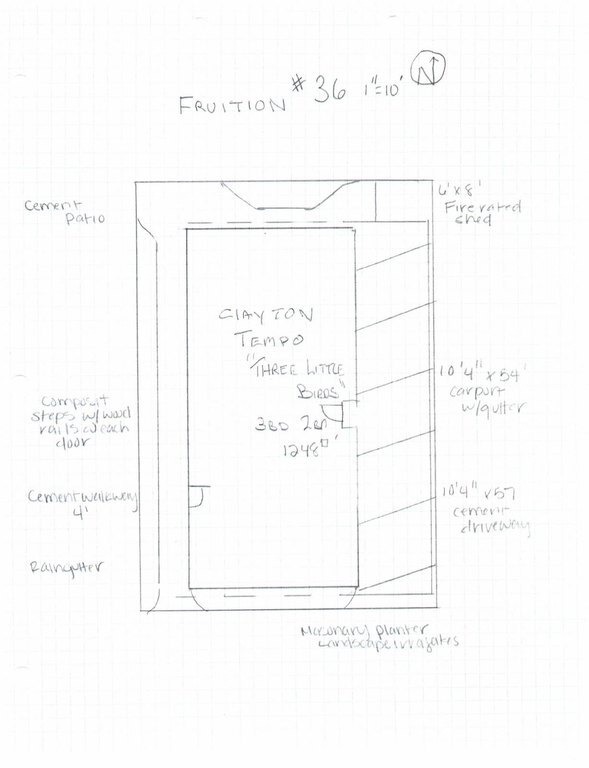 FRUITION #36 1"=10' N
Cement
patio
6' x 8'
Fire rated
shed
CLAYTON
TEMPO
"THREE LITTLE
BIRDS"
3BD 2BA
1248□'
10'4" x 54'
carport
w/gutter
Composit
steps w/wood
rails @ each
door
Cement walkway
4'
10'4" x 57
cement
driveway
Raingutter
Masonary planter